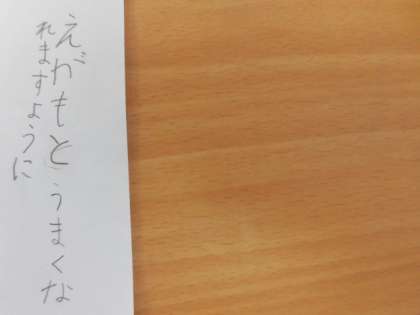 えがもとうまくな
れますように